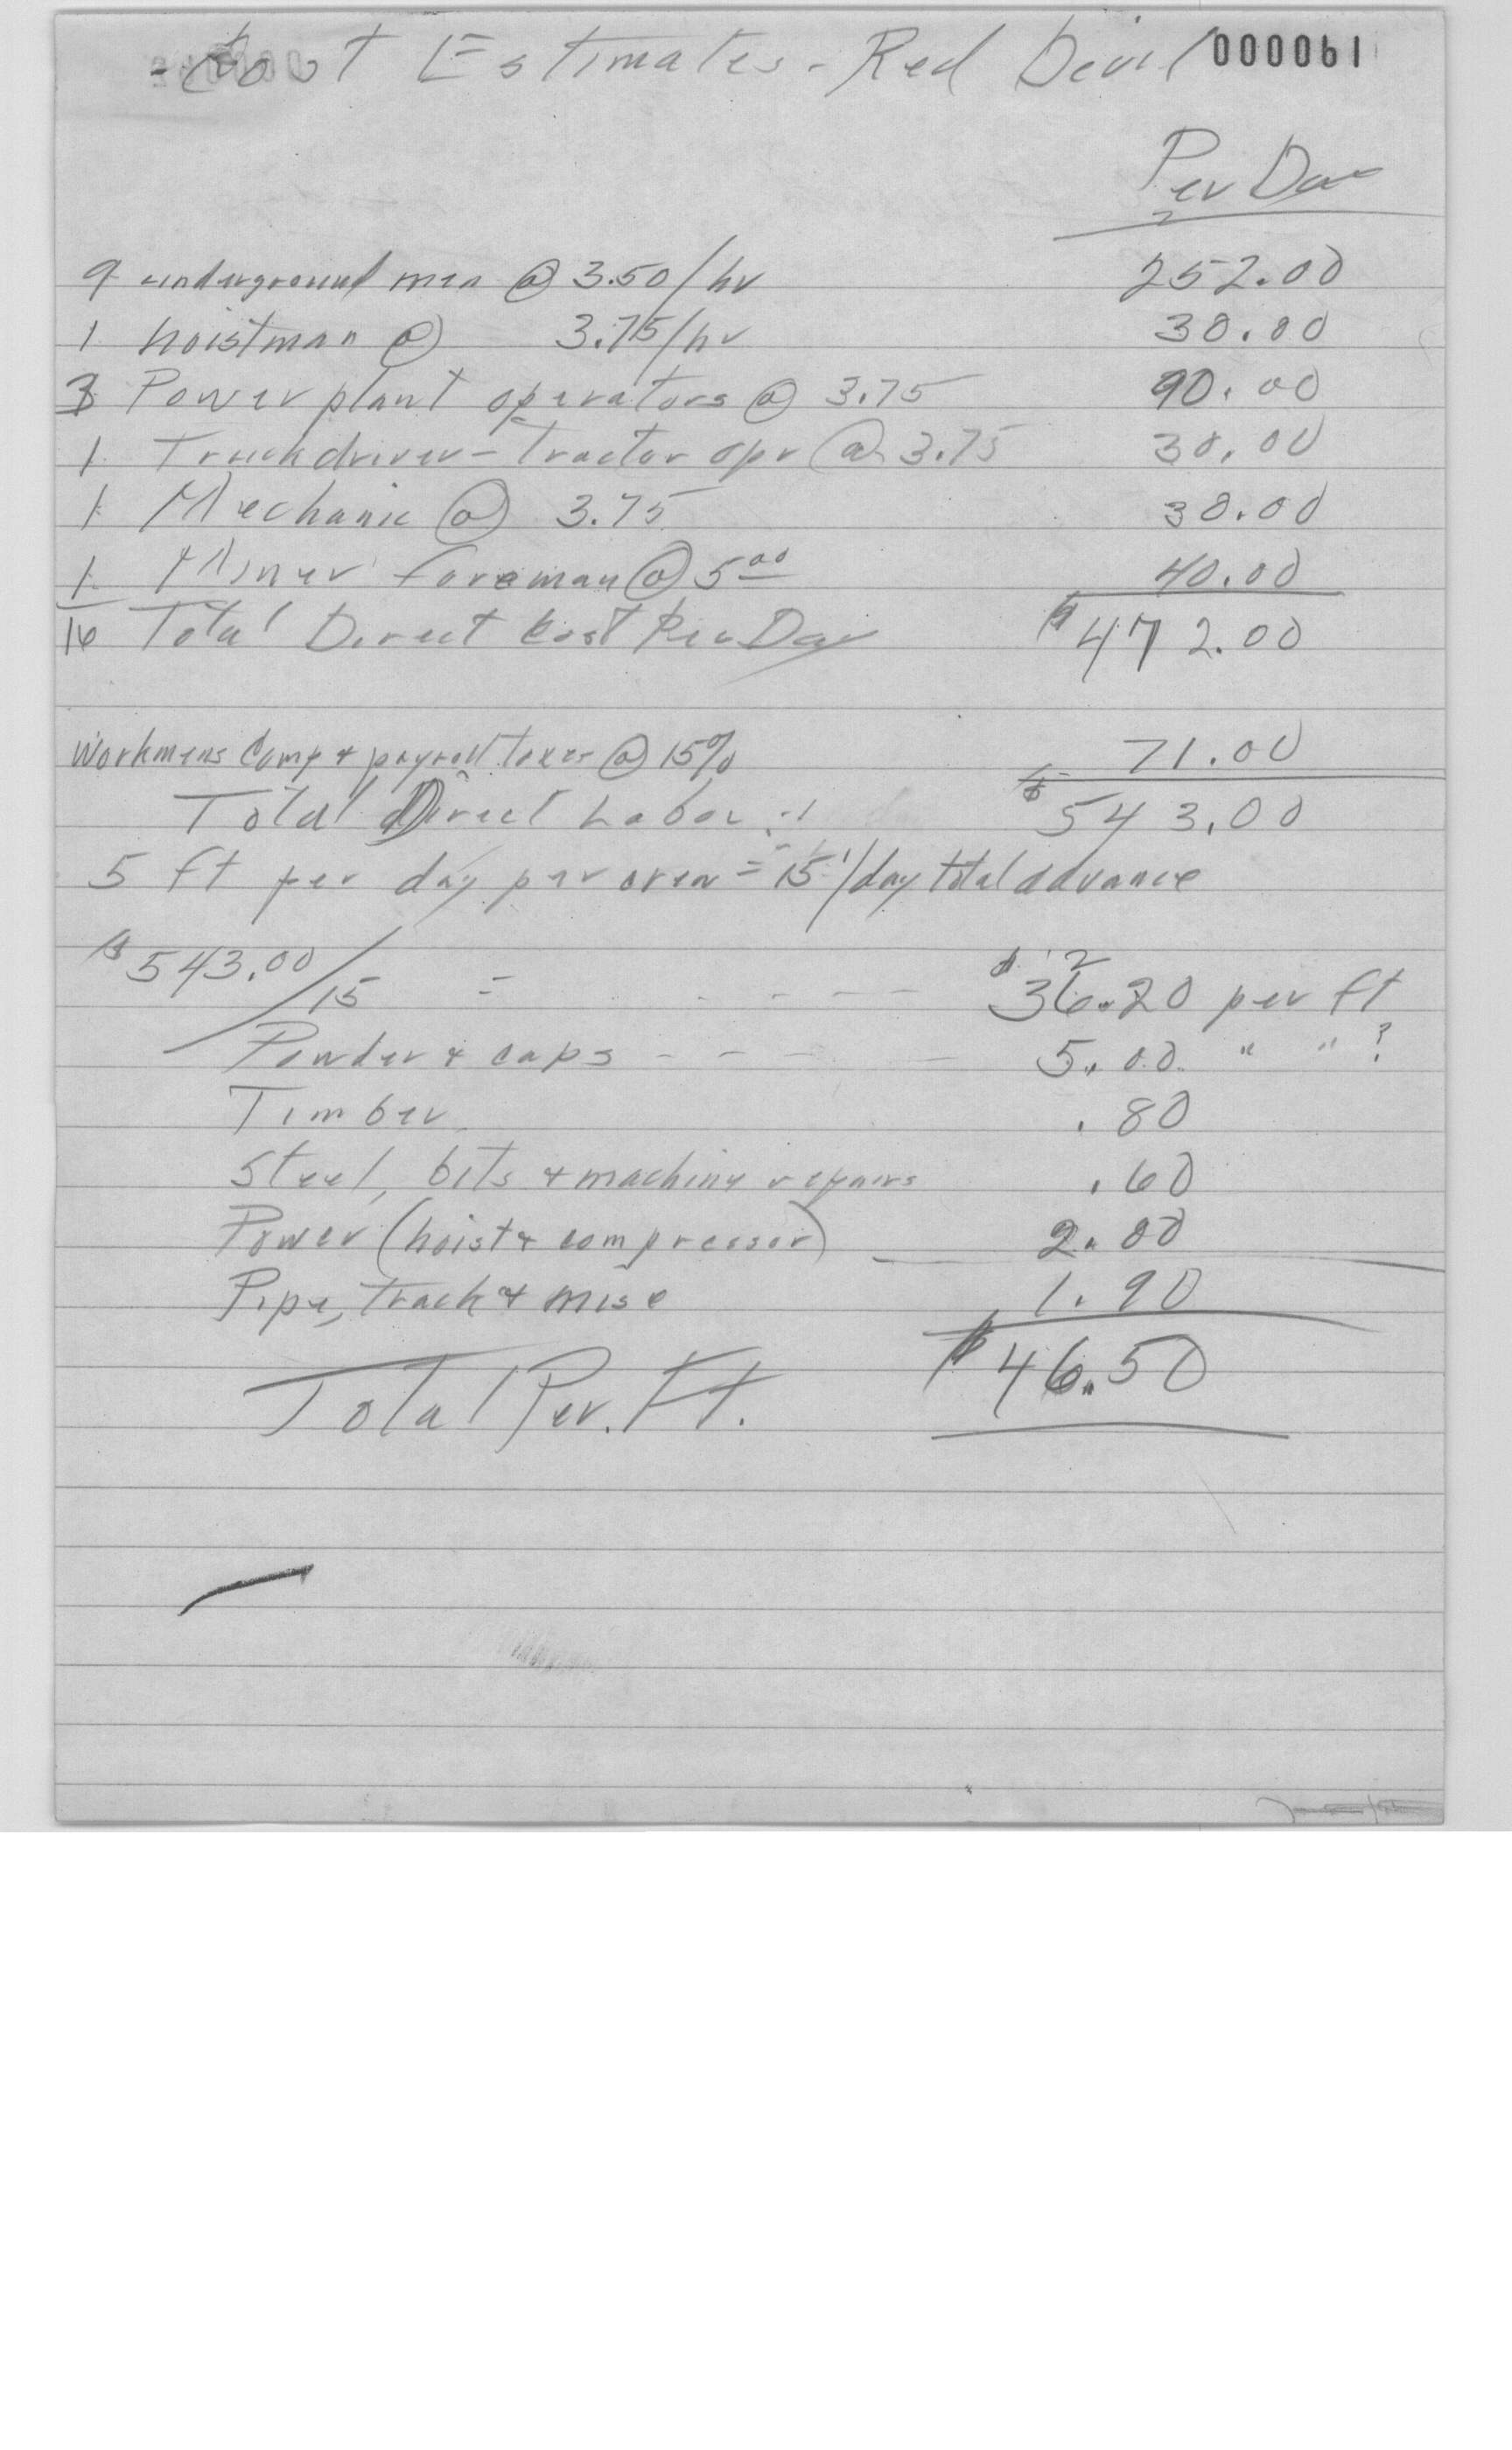 Cost Estimates - Red Devil 000061
Per Day
9 underground men @ 3.50/hr 252.00
1 hoistman @ 3.75/hr 30.00
3 Power plant operators @ 3.75 90.00
1 Truckdriver - Tractor opr @ 3.75 30.00
1 Mechanic @ 3.75 30.00
1 Miner foreman @ 5.00 40.00
16 Total Direct Cost Per Day $472.00
Workmens Comp & payroll taxes @ 15% 71.00
Total Direct Labor $543.00
5 ft per day per crew = 15'/day total advance
$543.00/15 = - - - - $36.20 per ft
Powder & caps - - - - 5.00 " " ?
Timber .80
Steel, bits & machine repairs .60
Power (hoist & compressor) 2.00
Pipe, track & misc 1.90
Total Per. Ft. $46.50